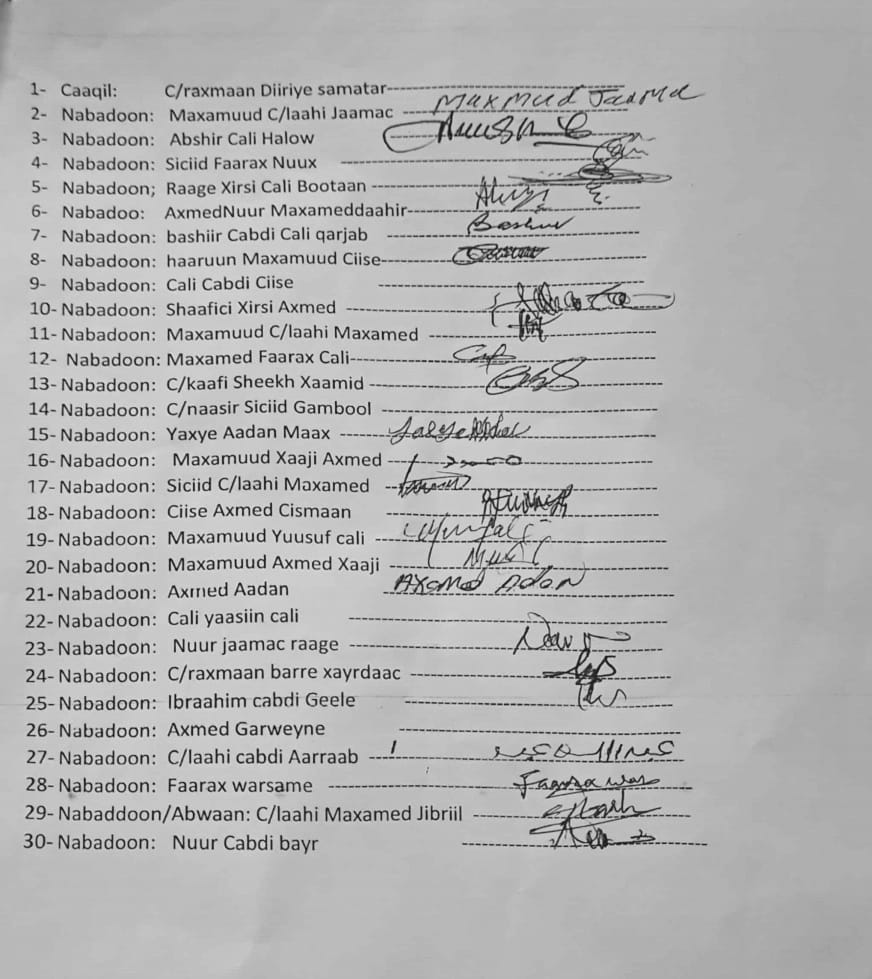 1- Caaqil: C/raxmaan Diiriye samatar
Maxmud Jaama
2- Nabadoon: Maxamuud C/laahi Jaamac
3- Nabadoon: Abshir Cali Halow
4- Nabadoon: Siciid Faarax Nuux
5- Nabadoon; Raage Xirsi Cali Bootaan
6- Nabadoo: AxmedNuur Maxameddaahir
7- Nabadoon: bashiir Cabdi Cali qarjab Bashir
8- Nabadoon: haaruun Maxamuud Ciise
9- Nabadoon: Cali Cabdi Ciise
10- Nabadoon: Shaafici Xirsi Axmed
11- Nabadoon: Maxamuud C/laahi Maxamed
12- Nabadoon: Maxamed Faarax Cali
13- Nabadoon: C/kaafi Sheekh Xaamid
14- Nabadoon: C/naasir Siciid Gambool
15- Nabadoon: Yaxye Aadan Maax
16- Nabadoon: Maxamuud Xaaji Axmed
17- Nabadoon: Siciid C/laahi Maxamed
18- Nabadoon: Ciise Axmed Cismaan
19- Nabadoon: Maxamuud Yuusuf cali
20- Nabadoon: Maxamuud Axmed Xaaji
21- Nabadoon: Axmed Aadan Axamed Adan
22- Nabadoon: Cali yaasiin cali
23- Nabadoon: Nuur jaamac raage
24- Nabadoon: C/raxmaan barre xayrdaac
25- Nabadoon: Ibraahim cabdi Geele
26- Nabadoon: Axmed Garweyne
27- Nabadoon: C/laahi cabdi Aarraab
28- Nabadoon: Faarax warsame
29- Nabaddoon/Abwaan: C/laahi Maxamed Jibriil
30- Nabadoon: Nuur Cabdi bayr